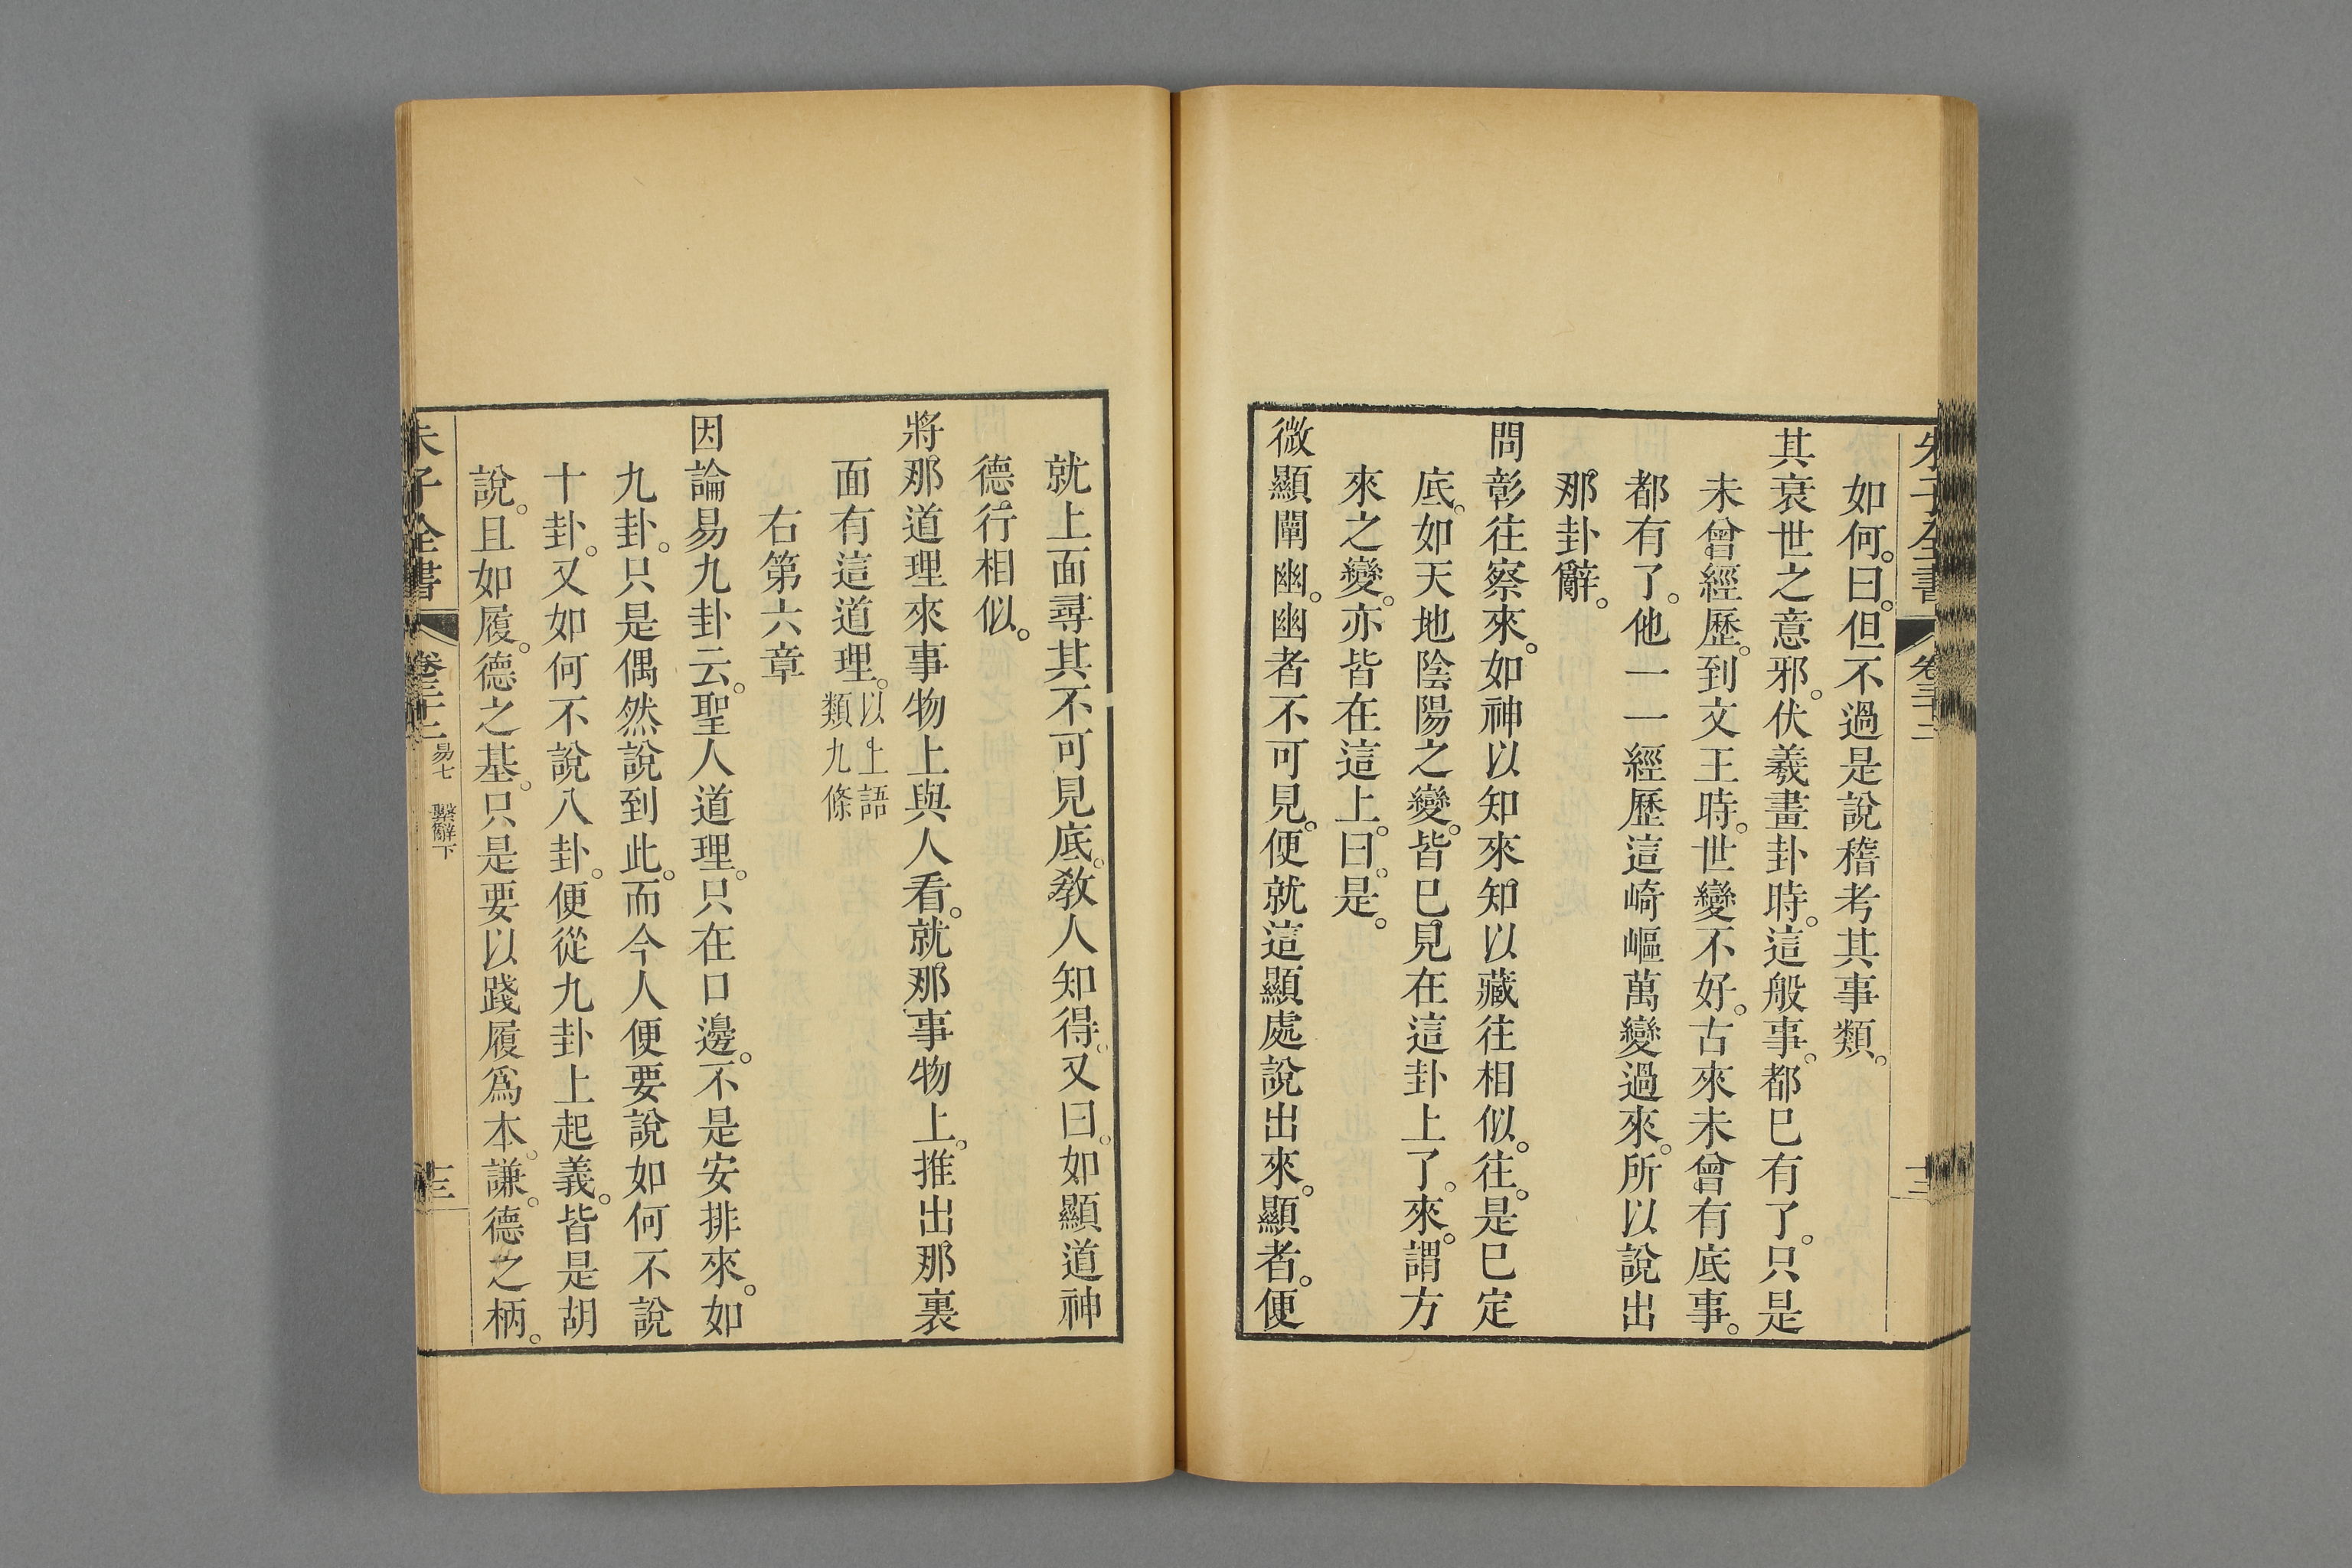 朱子全書 卷三十二 十二
如何。曰。但不過是說稽考其事類。
其衰世之意邪。伏羲畫卦時。這般事。都已有了。只是
未曾經歷。到文王時。世變不好。古來未曾有底事。
都有了。他一一經歷這崎嶇萬變過來。所以說出
那卦辭。
問彰往察來。如神以知來知以藏往相似。往。是已定
底。如天地陰陽之變。皆已見在這卦上了。來。謂方
來之變。亦皆在這上。曰。是。
微顯闡幽。幽者不可見。便就這顯處說出來。顯者。便
就上面尋其不可見底。敎人知得。又曰。如顯道神
德行相似。
將那道理來事物上與人看。就那事物上。推出那裏
面有這道理。以上語類九條
右第六章
因論易九卦云。聖人道理。只在口邊。不是安排來。如
九卦。只是偶然說到此。而今人便要說如何不說
十卦。又如何不說八卦。便從九卦上起義。皆是胡
說。且如履。德之基。只是要以踐履爲本。謙。德之柄。
朱子全書 卷三十二 易七 繫辭下 十三